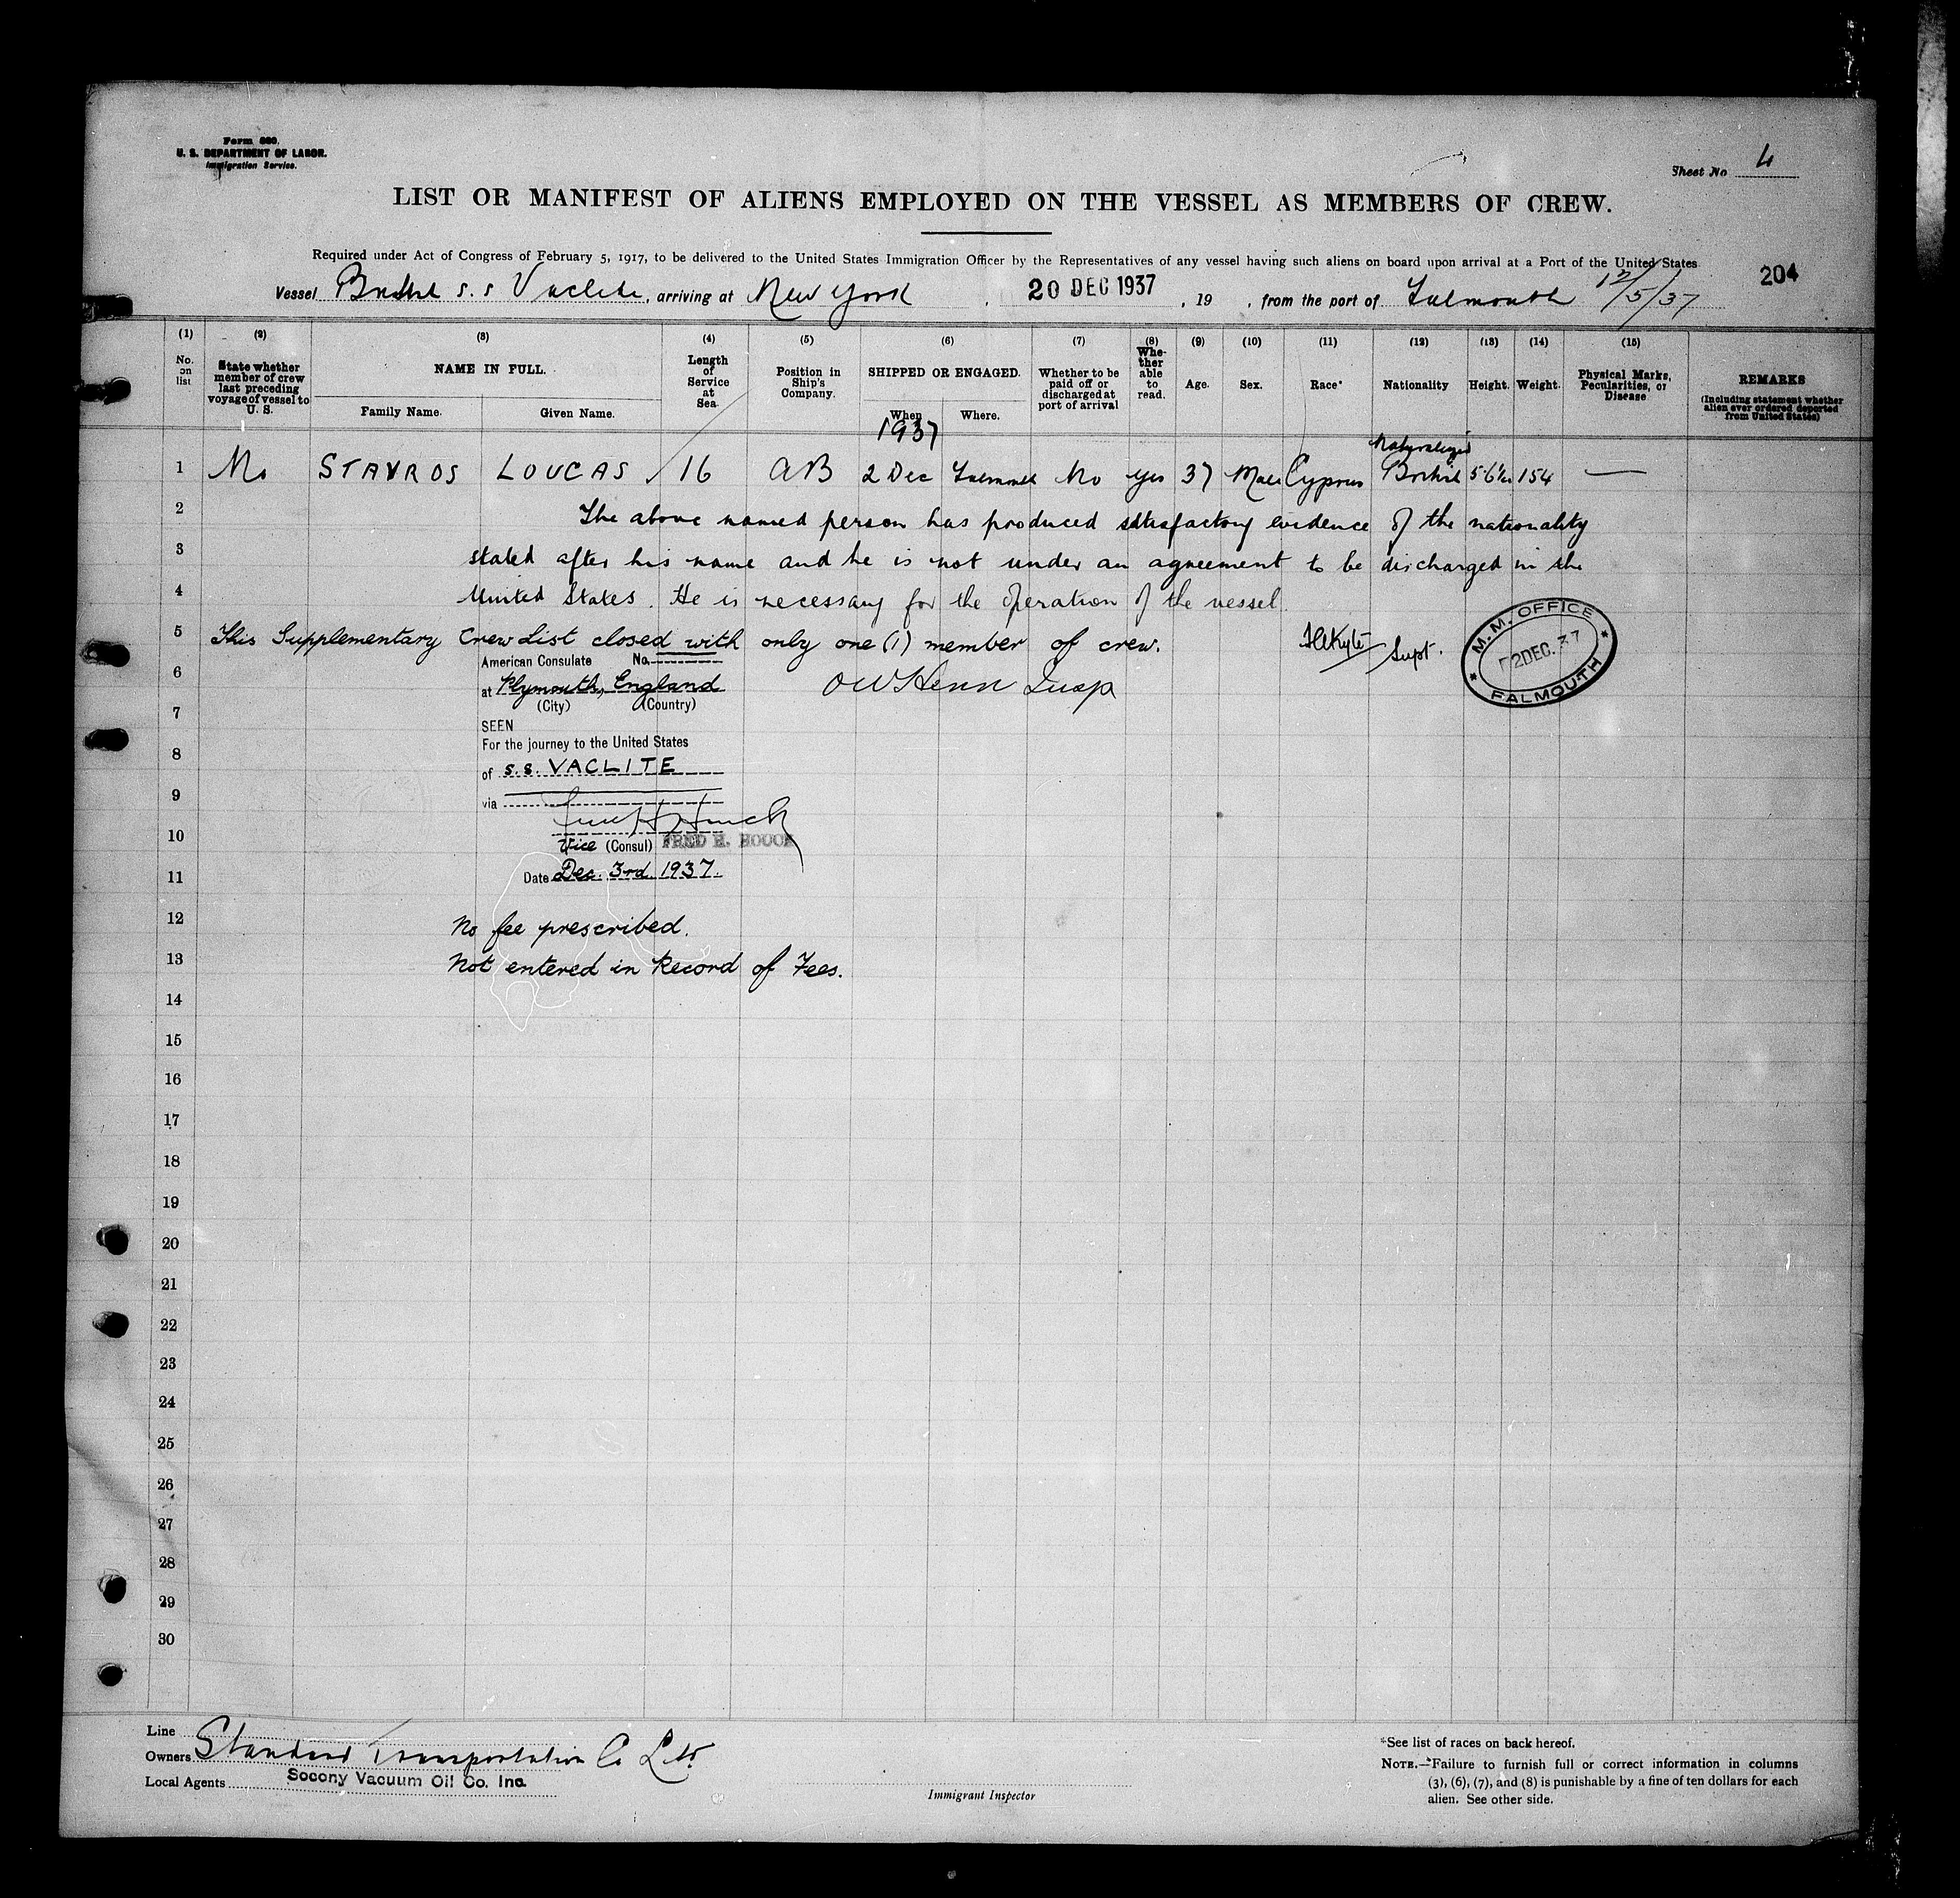 Form 680.
U. S. DEPARTMENT OF LABOR.
Immigration Service.
Sheet No 4
LIST OR MANIFEST OF ALIENS EMPLOYED ON THE VESSEL AS MEMBERS OF CREW.
Required under Act of Congress of February 5, 1917, to be delivered to the United States Immigration Officer by the Representatives of any vessel having such aliens on board upon arrival at a Port of the United States
204
Vessel British s.s Vaclite, arriving at New York, 20 DEC 1937, 19 , from the port of Falmouth 12/5/37
(1) (2) (3) (4) (5) (6) (7) (8) (9) (10) (11) (12) (13) (14) (15)
No. on list
State whether member of crew last preceding voyage of vessel to U. S.
NAME IN FULL.
Family Name. Given Name.
Length of Service at Sea
Position in Ship's Company.
SHIPPED OR ENGAGED.
When Where.
1937
Whether to be paid off or discharged at port of arrival
Whe-ther able to read.
Age. Sex. Race* Nationality Height. Weight.
Physical Marks, Pecularities, or Disease
REMARKS
(Including statement whether alien ever ordered deported from United States)
Naturalized
1 No STAVROS LOUCAS 16 AB 2 Dec Falmouth No yes 37 Male Cyprus British 5-6½ 154 —
2 The above named person has produced satisfactory evidence of the nationality
3 stated after his name and he is not under an agreement to be discharged in the
4 United States. He is necessary for the operation of the vessel.
5 This Supplementary Crew List closed with only one (1) member of crew.
Supt.
M. M. OFFICE
2 DEC. 37
FALMOUTH
American Consulate No.
6
at Plymouth, England
(City) (Country)
7
SEEN
For the journey to the United States
8
of s.s. VACLITE
9
via
10
Vice (Consul) FRED H. HOUCK
11
Date Dec. 3rd. 1937.
12 No fee prescribed.
13 Not entered in Record of Fees.
14
15
16
17
18
19
20
21
22
23
24
25
26
27
28
29
30
Line
Owners Standard Transportation Co Ltd.
Local Agents Socony Vacuum Oil Co. Inc.
Immigrant Inspector
*See list of races on back hereof.
NOTE.—Failure to furnish full or correct information in columns
(3), (6), (7), and (8) is punishable by a fine of ten dollars for each
alien. See other side.